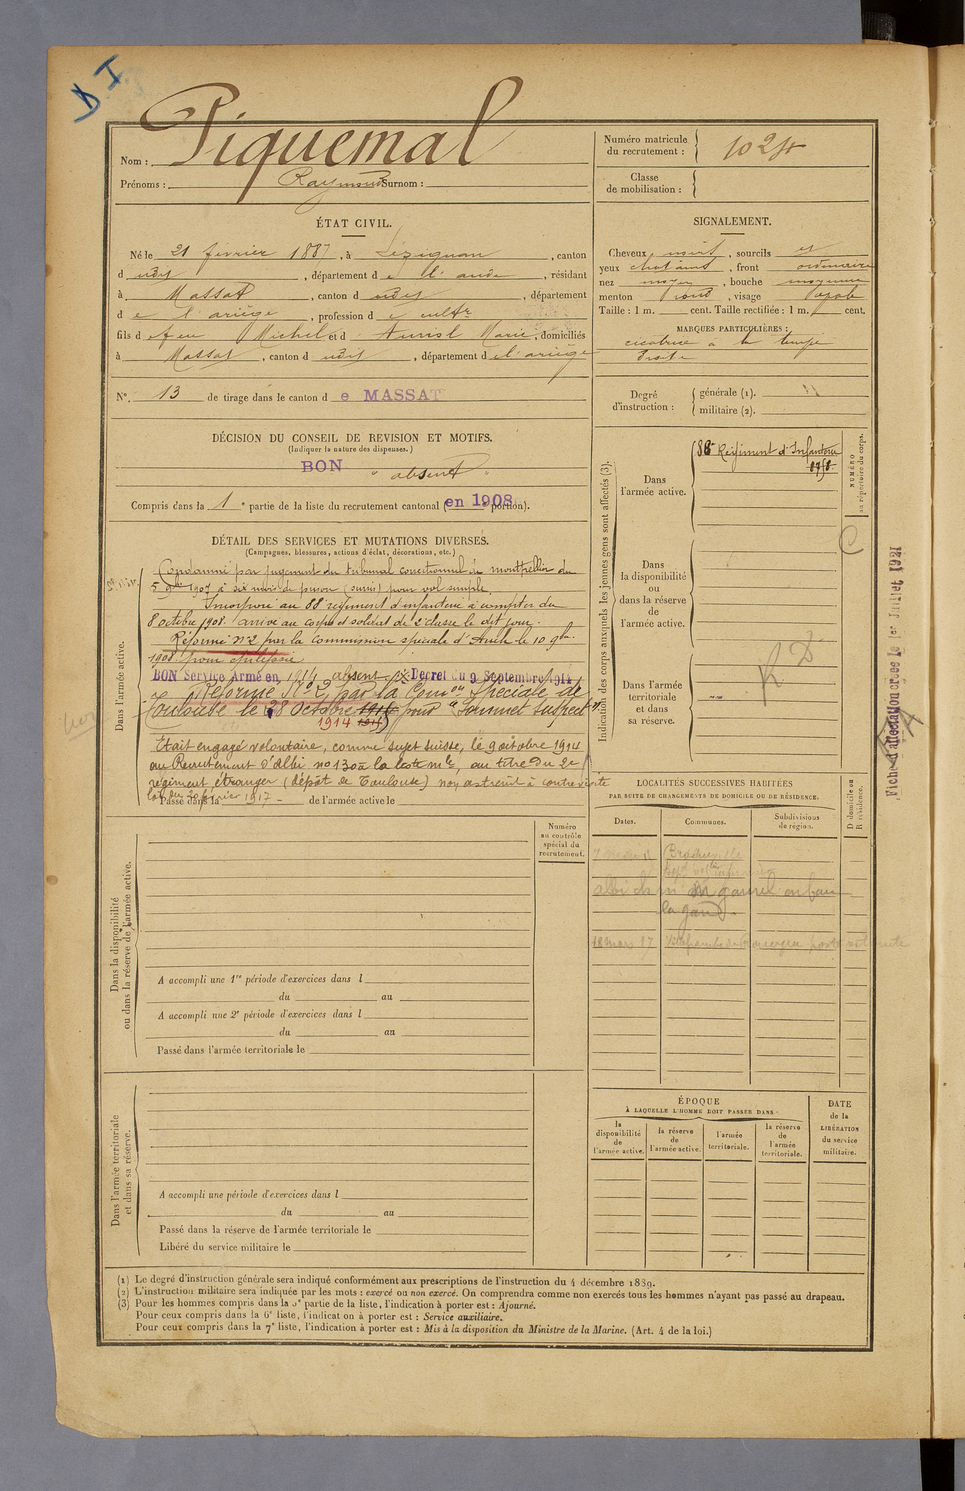 D I
Nom : Piquemal
Prénoms : Raymond Surnom :
Numéro matricule
du recrutement :
Classe
de mobilisation :
ÉTAT CIVIL.
Né le 21 fevrier 1887, à Lézignan, canton
d udit, département de l'aude, résidant
à Massat, canton d udit, département
de l'ariège, profession de cultr
fils de feu Michel et d Marie, domiciliés
à Massat, canton d udit, département de l'ariège
N°. 13 de tirage dans le canton de MASSAT
DÉCISION DU CONSEIL DE REVISION ET MOTIFS.
(Indiquer la nature des dispenses.)
BON "absent"
Compris dans la 1e partie de la liste du recrutement cantonal (en 1908 portion).
DÉTAIL DES SERVICES ET MUTATIONS DIVERSES.
(Campagnes, blessures, actions d'éclat, décorations, etc.)
Dans l'armée active.
Condamné par jugement du tribunal correctionnel de montpellier du
5 9bre 1907 à six mois de prison (sursis) pour vol simple.
Incorporé au 88 régiment d'infanterie à compter du
8 octobre 1908. arrivé au corps et soldat de 2e classe le dit jour.
Réformé n°2 par la Commission spéciale d'Auch le 10 9bre
1908 pour épilepsie
BON Service Armé en 1914 absent Décret du 9 Septembre 1914
Réformé N°2 par la Comon Spéciale de
Toulouse le 28 Octobre 1914 pour "Sommet suspect".
1914
Etait engagé volontaire, comme sujet suisse, le 9 octobre 1914
au Recrutement d'Albi n° 130 la liste mle, au titre du 2e
régiment étranger (dépôt de Toulouse) non astreint à contre visite
loi du 20 février 1917 -
Passé dans la de l'armée active le
Numéro
au contrôle
spécial du
recrutement.
Dans la disponibilité
ou dans la réserve de l'armée active.
A accompli une 1re période d'exercices dans l
du au
A accompli une 2e période d'exercices dans l
du au
Passé dans l'armée territoriale le
Dans l'armée territoriale
et dans sa réserve.
A accompli une période d'exercices dans l
du au
Passé dans la réserve de l'armée territoriale le
Libéré du service militaire le
SIGNALEMENT.
Cheveux noirs, sourcils et
yeux chatains, front ordinaire
nez moyen, bouche moyenne
menton rond, visage ovale
Taille : 1 m. cent. Taille rectifiée : 1 m. cent.
MARQUES PARTICULIÈRES :
cicatrice à la tempe
droite
Degré
d'instruction :
générale (1).
militaire (2).
Indication des corps auxquels les jeunes gens sont affectés (3).
NUMÉRO
au répertoire du corps.
Dans
l'armée active.
88e Régiment d'Infanterie
Dans
la disponibilité
ou
dans la réserve
de
l'armée active.
C
Dans l'armée
territoriale
et dans
sa réserve.
R D.
Fiche d'affectation créée le 1er Juillet 1921
LOCALITÉS SUCCESSIVES HABITÉES
PAR SUITE DE CHANGEMENTS DE DOMICILE OU DE RÉSIDENCE.
Dates.
Communes.
Subdivisions
de région.
D domicile ou
R résidence.
18 mars 17
ÉPOQUE
À LAQUELLE L'HOMME DOIT PASSER DANS
la
disponibilité
de
l'armée active.
la réserve
de
l'armée active.
l'armée
territoriale.
la réserve
de
l'armée
territoriale.
DATE
de la
LIBÉRATION
du service
militaire.
(1) Le degré d'instruction générale sera indiqué conformément aux prescriptions de l'instruction du 4 décembre 1889.
(2) L'instruction militaire sera indiquée par les mots : exercé ou non exercé. On comprendra comme non exercés tous les hommes n'ayant pas passé au drapeau.
(3) Pour les hommes compris dans la 5e partie de la liste, l'indication à porter est : Ajourné.
Pour ceux compris dans la 6e liste, l'indication à porter est : Service auxiliaire.
Pour ceux compris dans la 7e liste, l'indication à porter est : Mis à la disposition du Ministre de la Marine. (Art. 4 de la loi.)